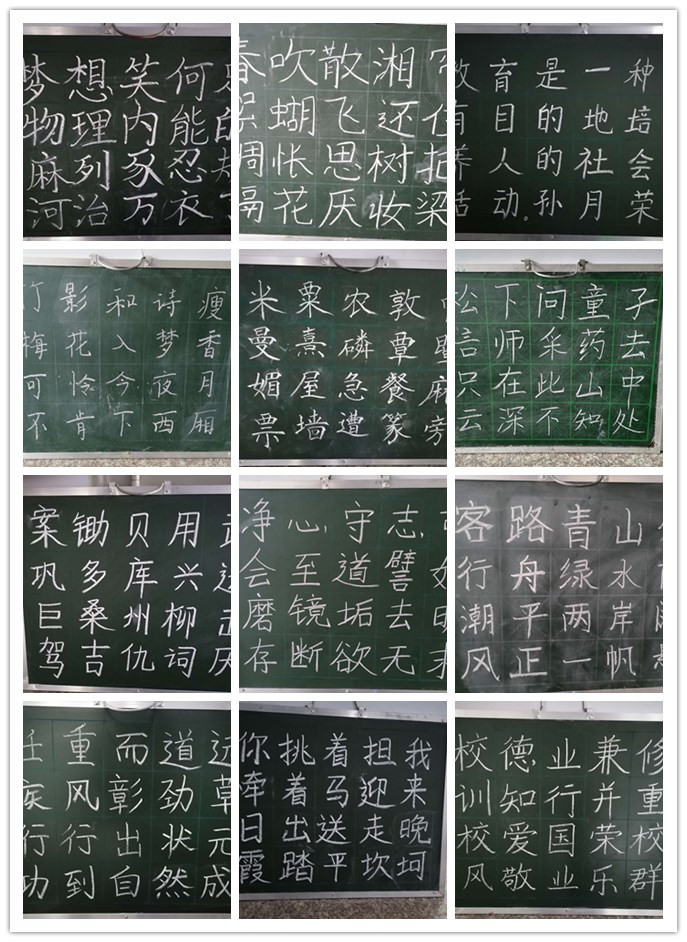 梦想笑何
物理内能
麻列豕忍
河治万衣
春吹散湘
蝴飞还
惆怅思树
隔花厌妆梁
教育是一种
有目的地培
养人的社会
活动。孙月荣
竹影和诗瘦
梅花入梦香
可怜今夜月
不肯下西厢
米粟农敦
曼熹磷覃
媚屋急餐麻
票墙遭篆旁
松下问童子
言师采药去
只在此山中
云深不知处
案锄贝用
巩多库兴
巨桑州柳
驾吉仇词
净心守志
会至道譬如
磨镜垢去明
存断欲无求
客路青山
行舟绿水
潮平两岸
风正一帆
任重而道远
疾风彰劲草
行行出状元
功到自然成
你挑着担我
牵着马迎来
日出送走晚
霞踏平坎坷
校德业兼修
训知行并重
校爱国荣校
风敬业乐群